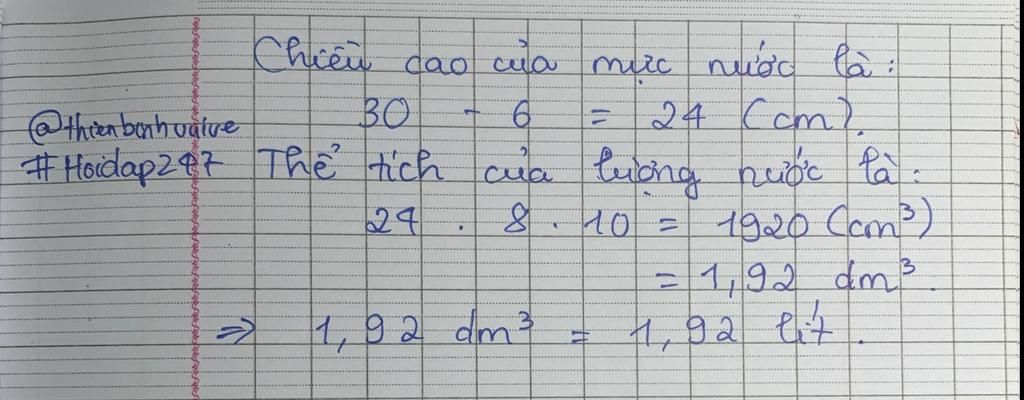 Chiều cao của mực nước là:
30 - 6 = 24 (cm).
@thienbinhvuive
#Hoidap247
Thể tích của lượng nước là:
24 . 8 . 10 = 1920 (cm³)
= 1,92 dm³.
⇒ 1,92 dm³ = 1,92 lít.